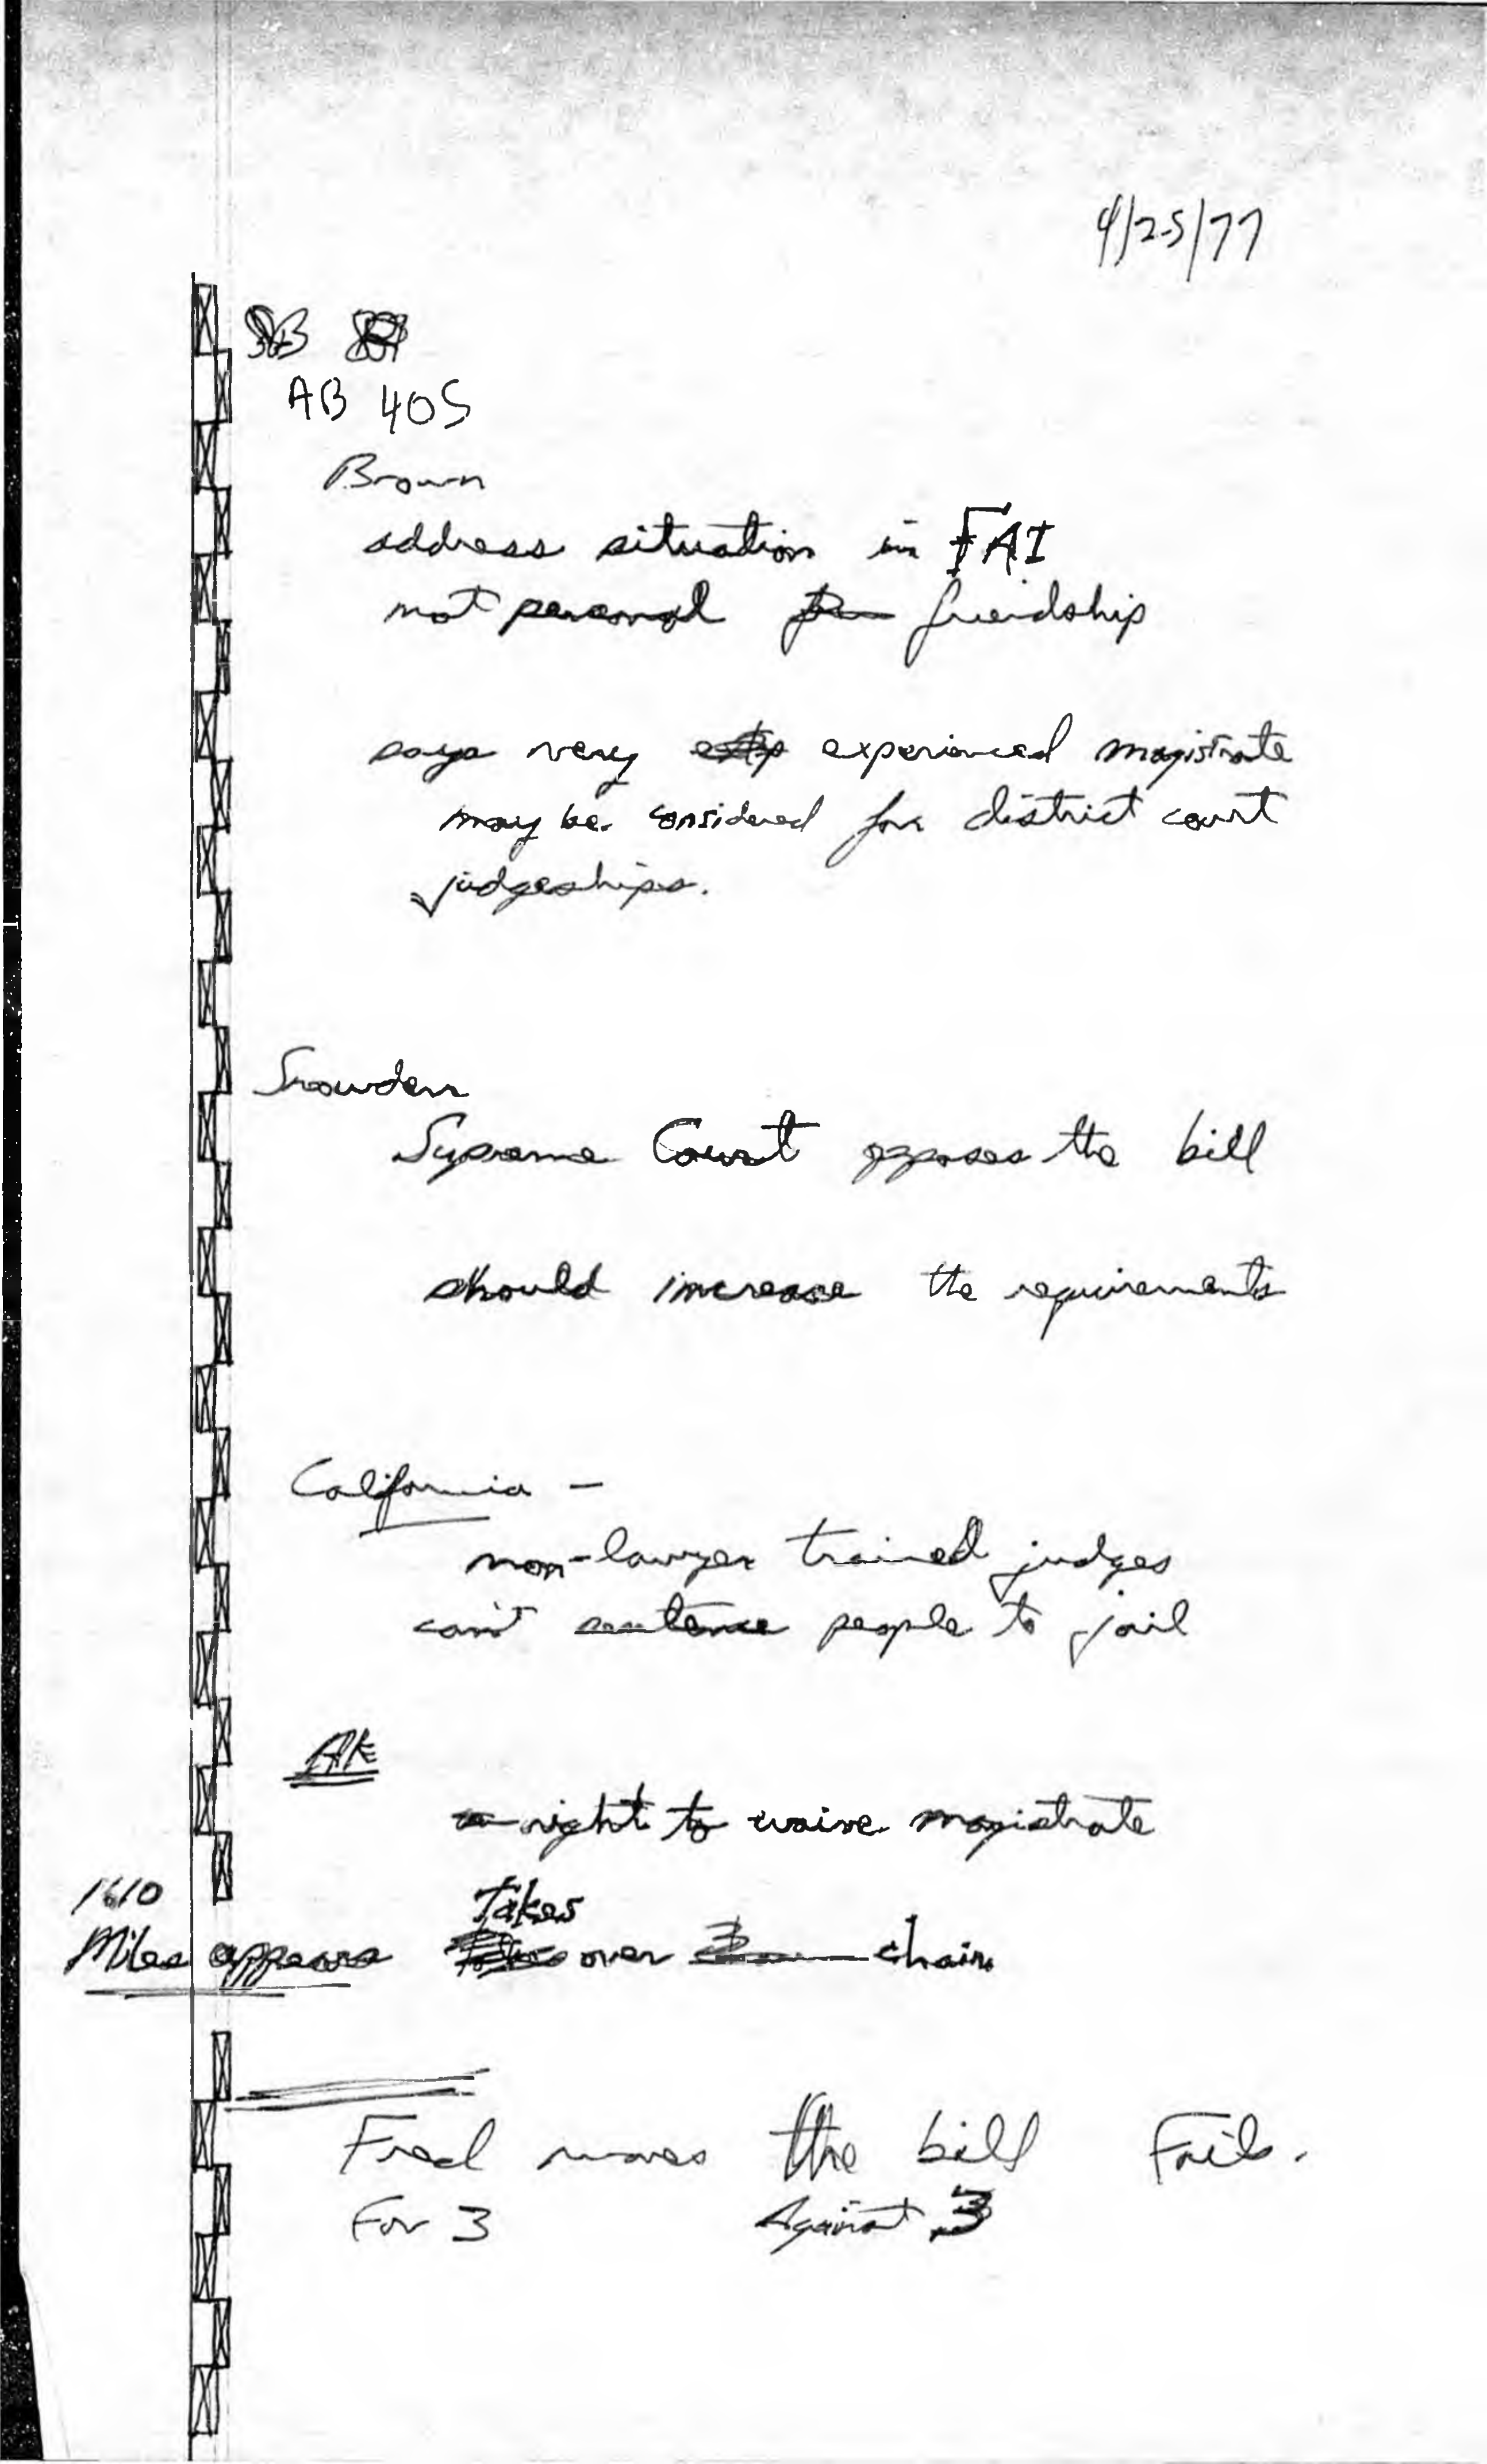 4/25/77
AB 405
Brown
address situation in FAI
not personal friendship
says very experienced magistrate
may be considered for district court
judgeships.
Snowden
Supreme Court opposes the bill
should increase the requirements
California -
non-lawyer trained judges
can't sentence people to jail
AK
right to waive magistrate
1610
Takes
Miles appears over chair
Fred moves the bill Fails.
For 3 Against 3